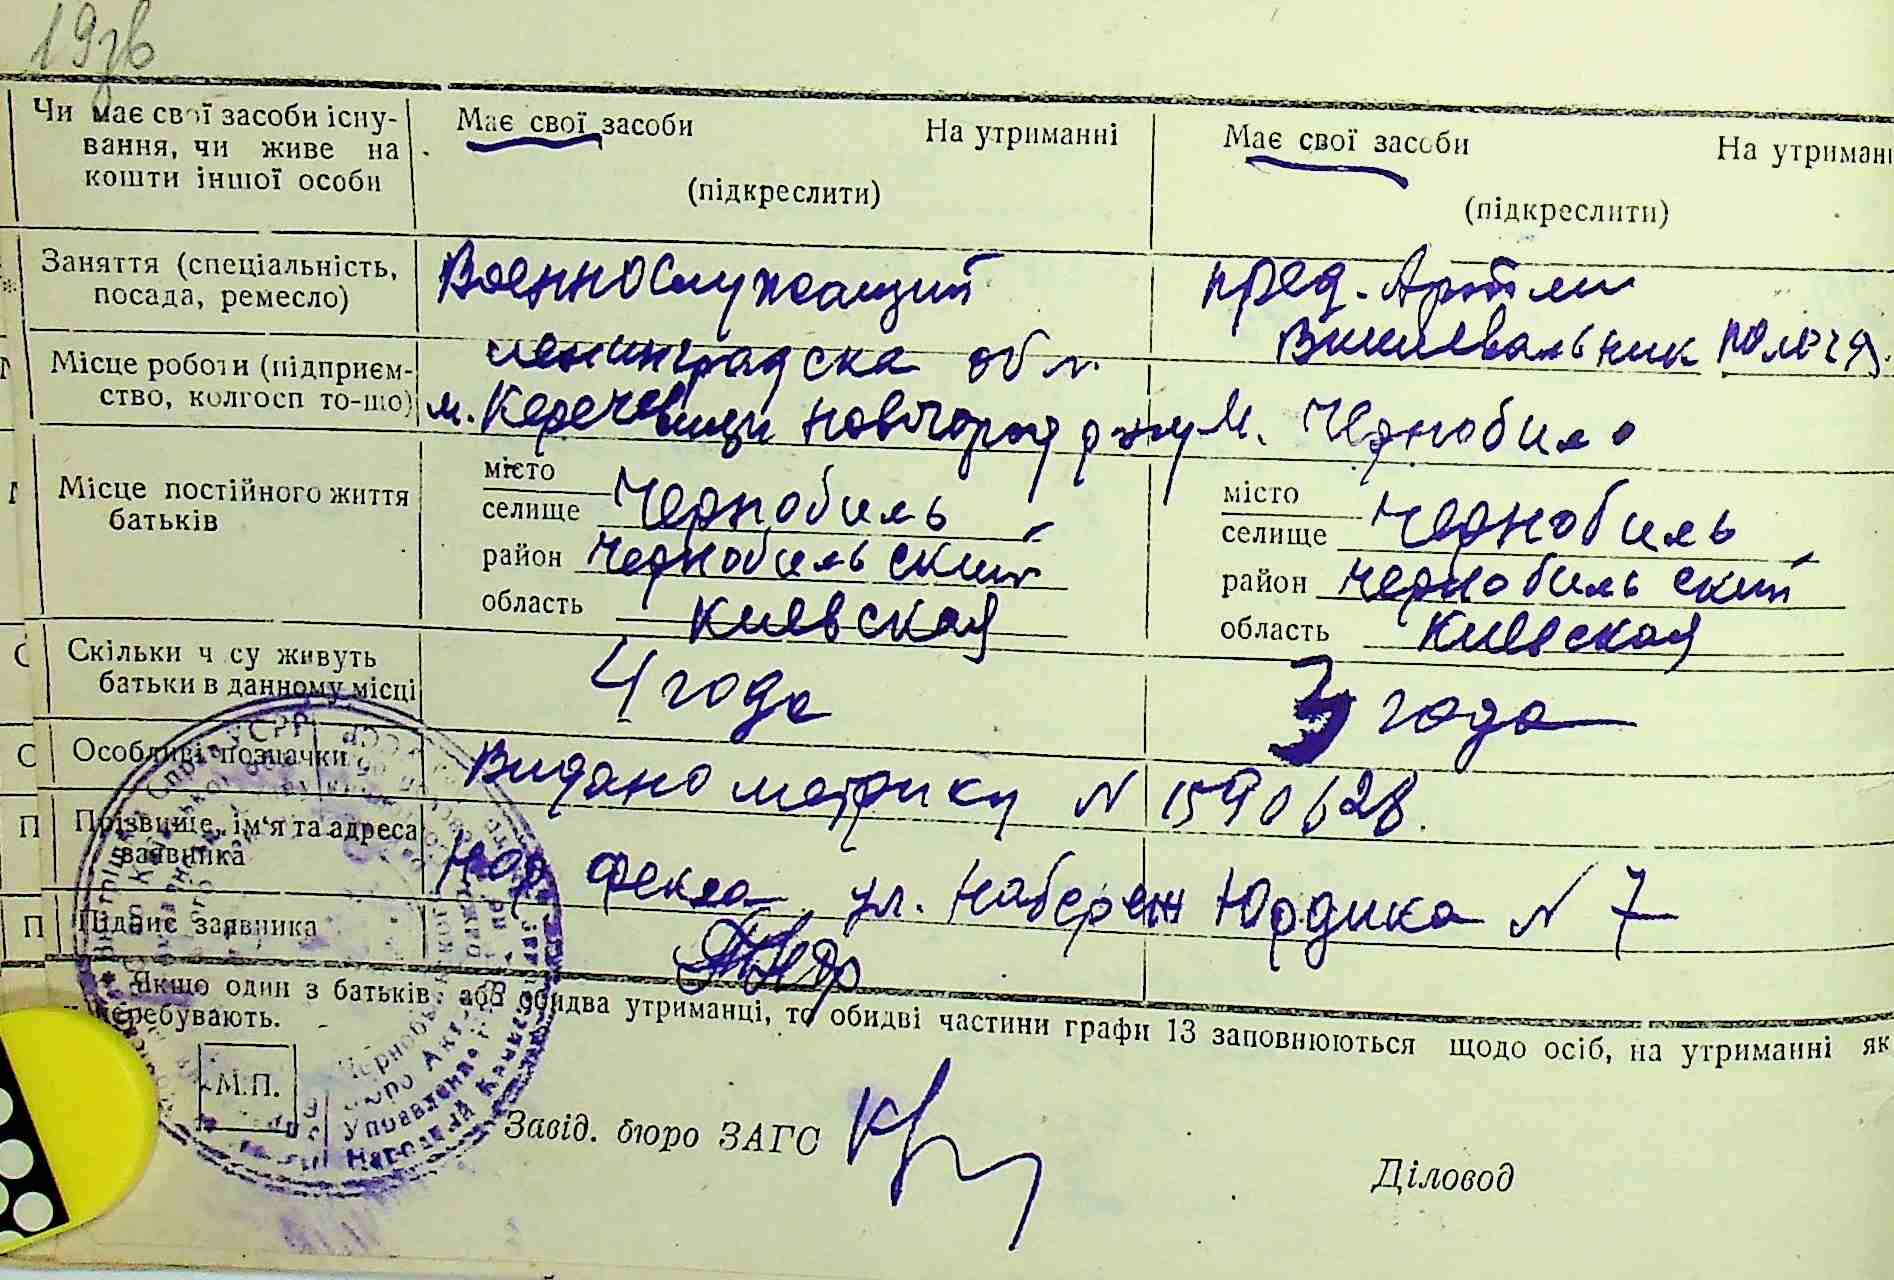 Чи має свої засоби існу-
вання, чи живе на
кошти іншої особи
Має свої засоби На утриманні
(підкреслити)
Має свої засоби На утриманні
(підкреслити)
Заняття (спеціальність,
посада, ремесло)
Военнослужащий
пред. Артели
Вишивальник
Місце роботи (підприєм-
ство, колгосп то-що)
Ленинградска обл.
м. Кречевици
м. Чернобиль
Місце постійного життя
батьків
місто
селище Чернобиль
район Чернобильский
область Киевская
місто
селище Чернобиль
район Чернобильский
область Киевская
Скільки ч су живуть
батьки в данному місці
4 года
3 года
Особливі позначки
Видано метрику N 1590628.
Прізвище, ім'я та адреса
заявника
Нор Фекла ул. Набереж Юрдика N 7
Підпис заявника
* Якщо один з батьків, або обидва утриманці, то обидві частини графи 13 заповнюються щодо осіб, на утриманні як
перебувають.
М.П.
Завід. бюро ЗАГС
Діловод